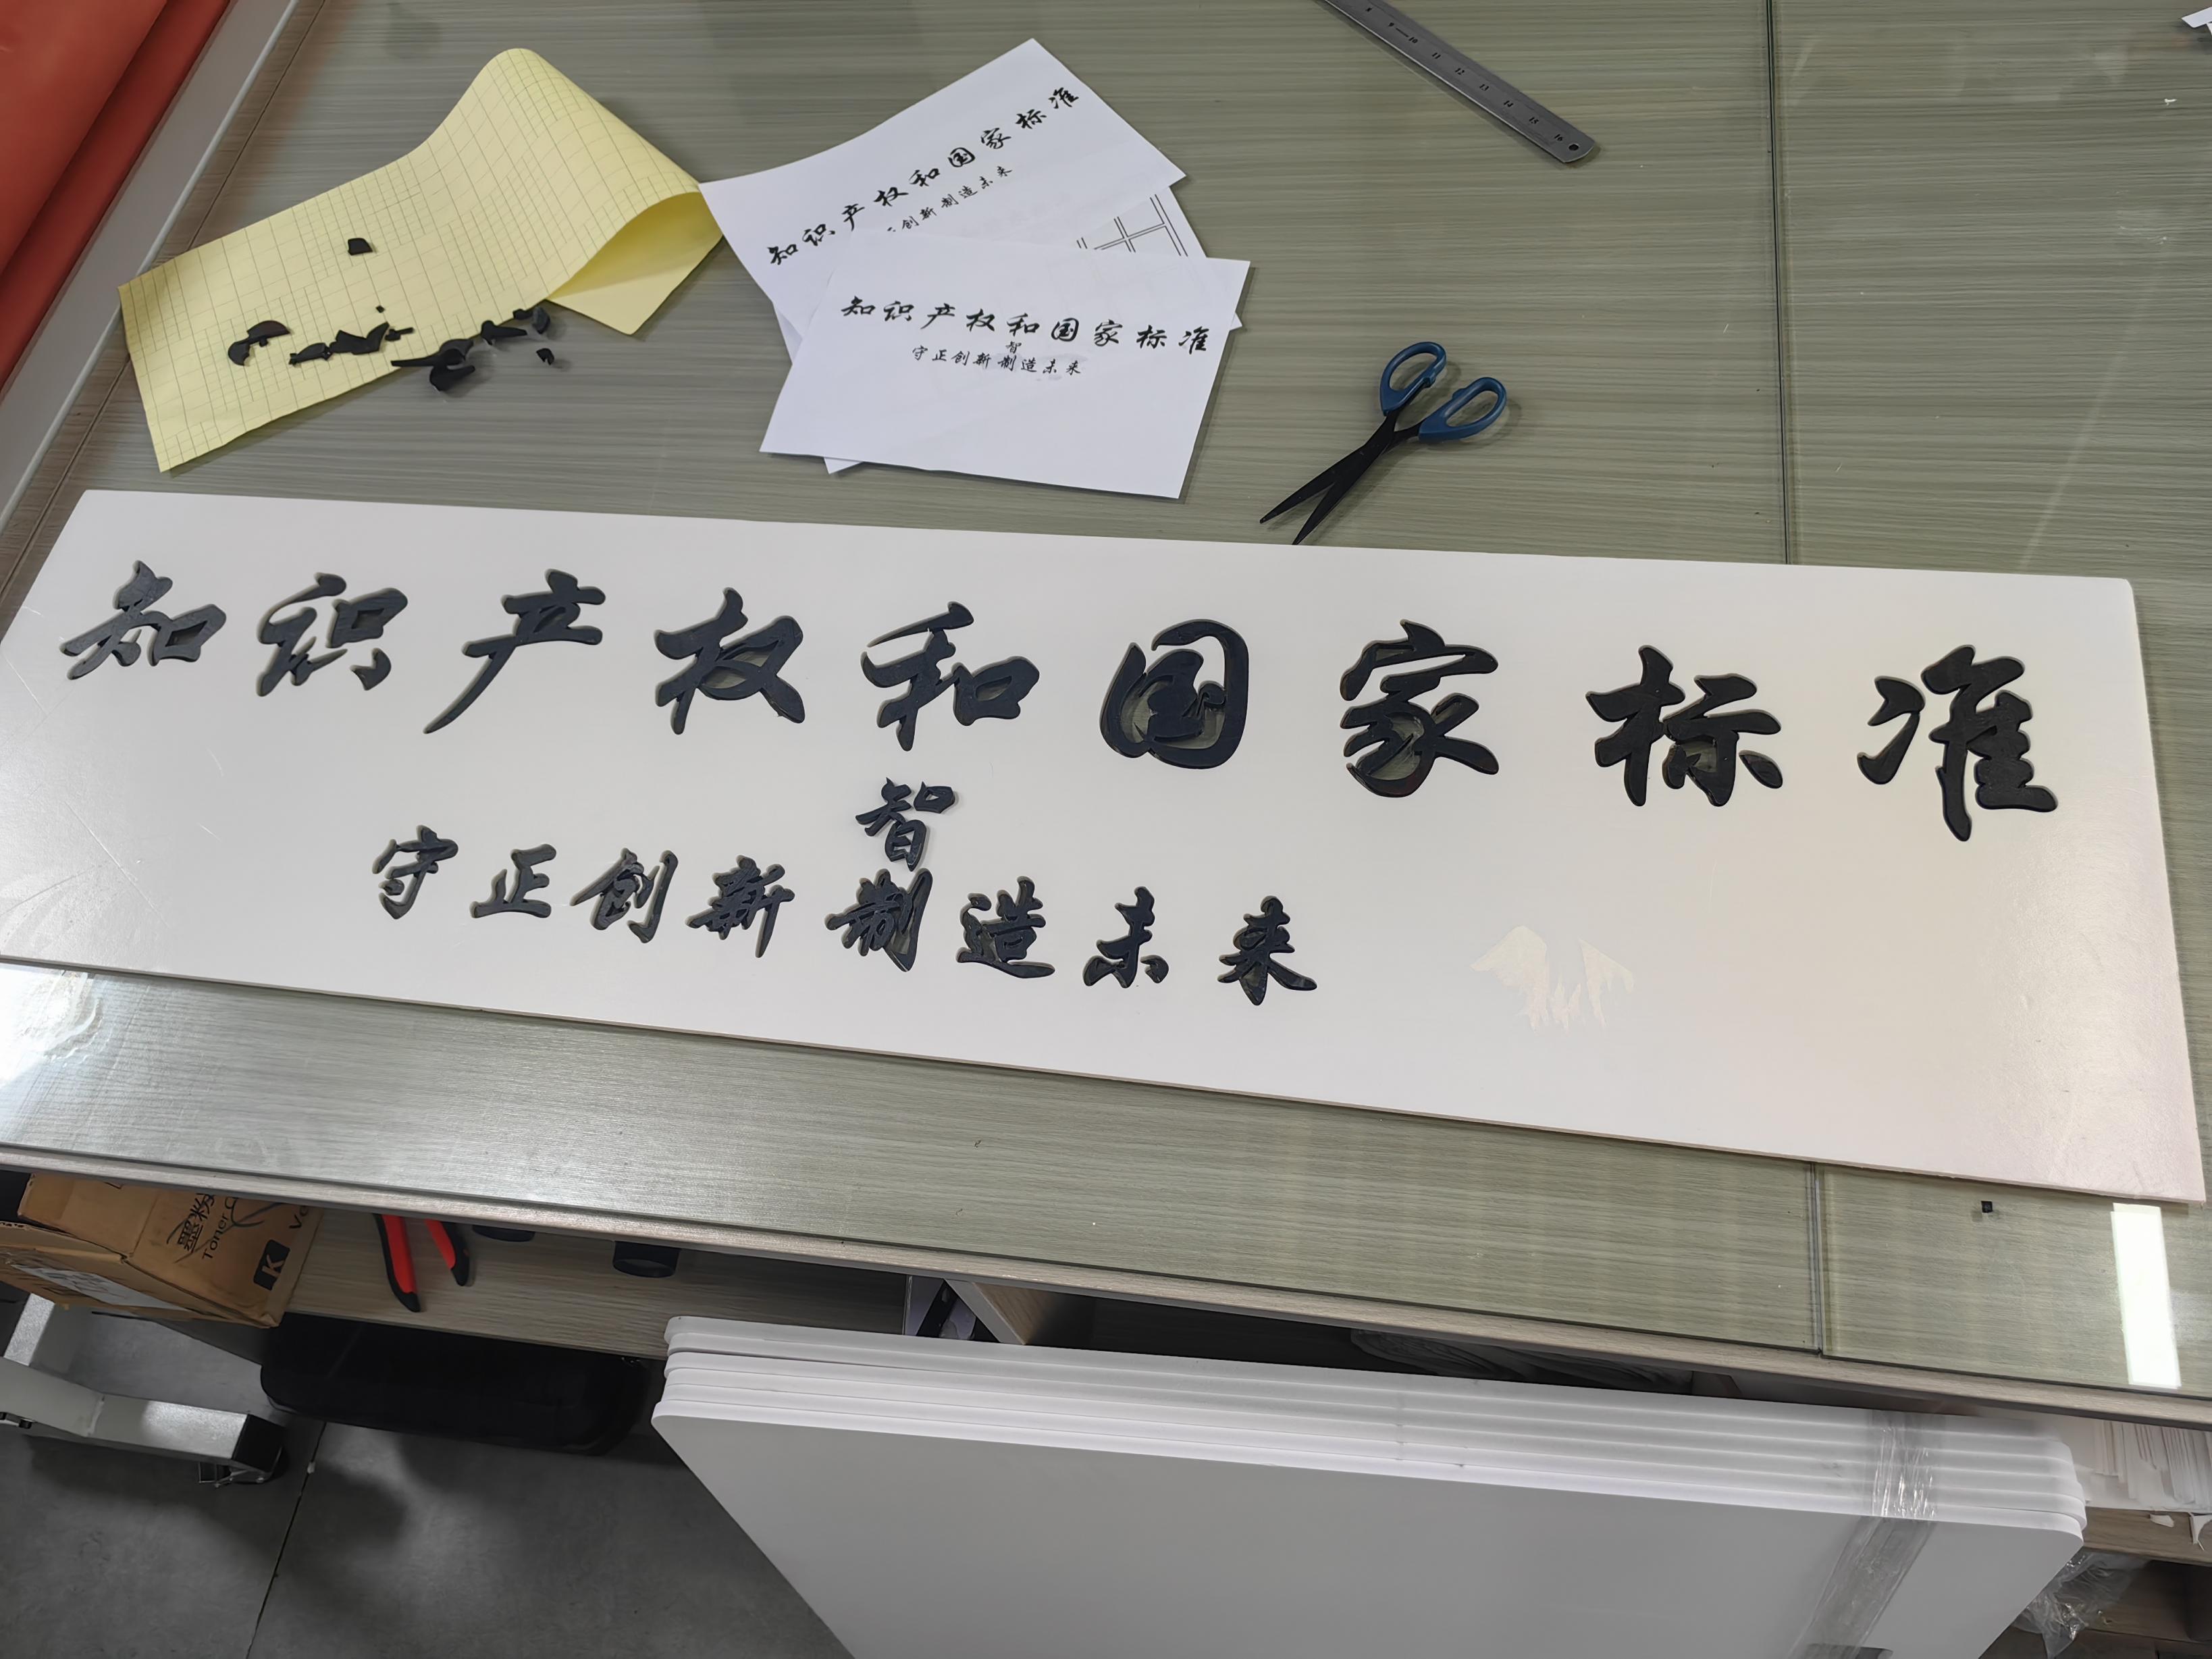 8 9 10 11 12 13 14 15 16
知识产权和国家标准
创新制造未来
知识产权和国家标准
智
守正创新制造未来
知识产权和国家标准
智
守正创新制造未来
墨粉
Toner
K